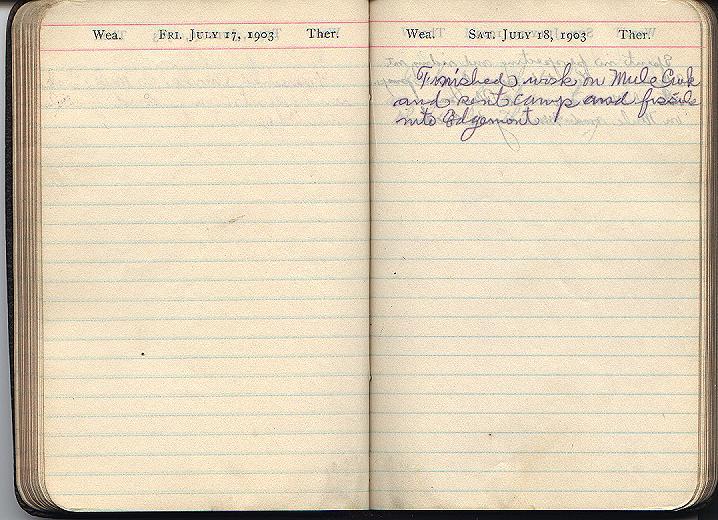 Wea. FRI. JULY 17, 1903 Ther.
Wea. SAT. JULY 18, 1903 Ther.
Finished work on Mule Creek
and sent camp and fossils
into Edgemont